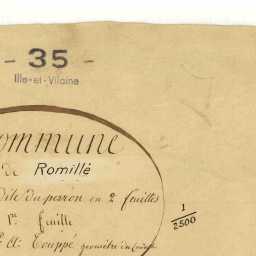 - 35 -
Ille-et-Vilaine
ommune
de Romillé
dite du perron en 2 feuilles
1re feuille
1
2500
A: Touppé géomètre du